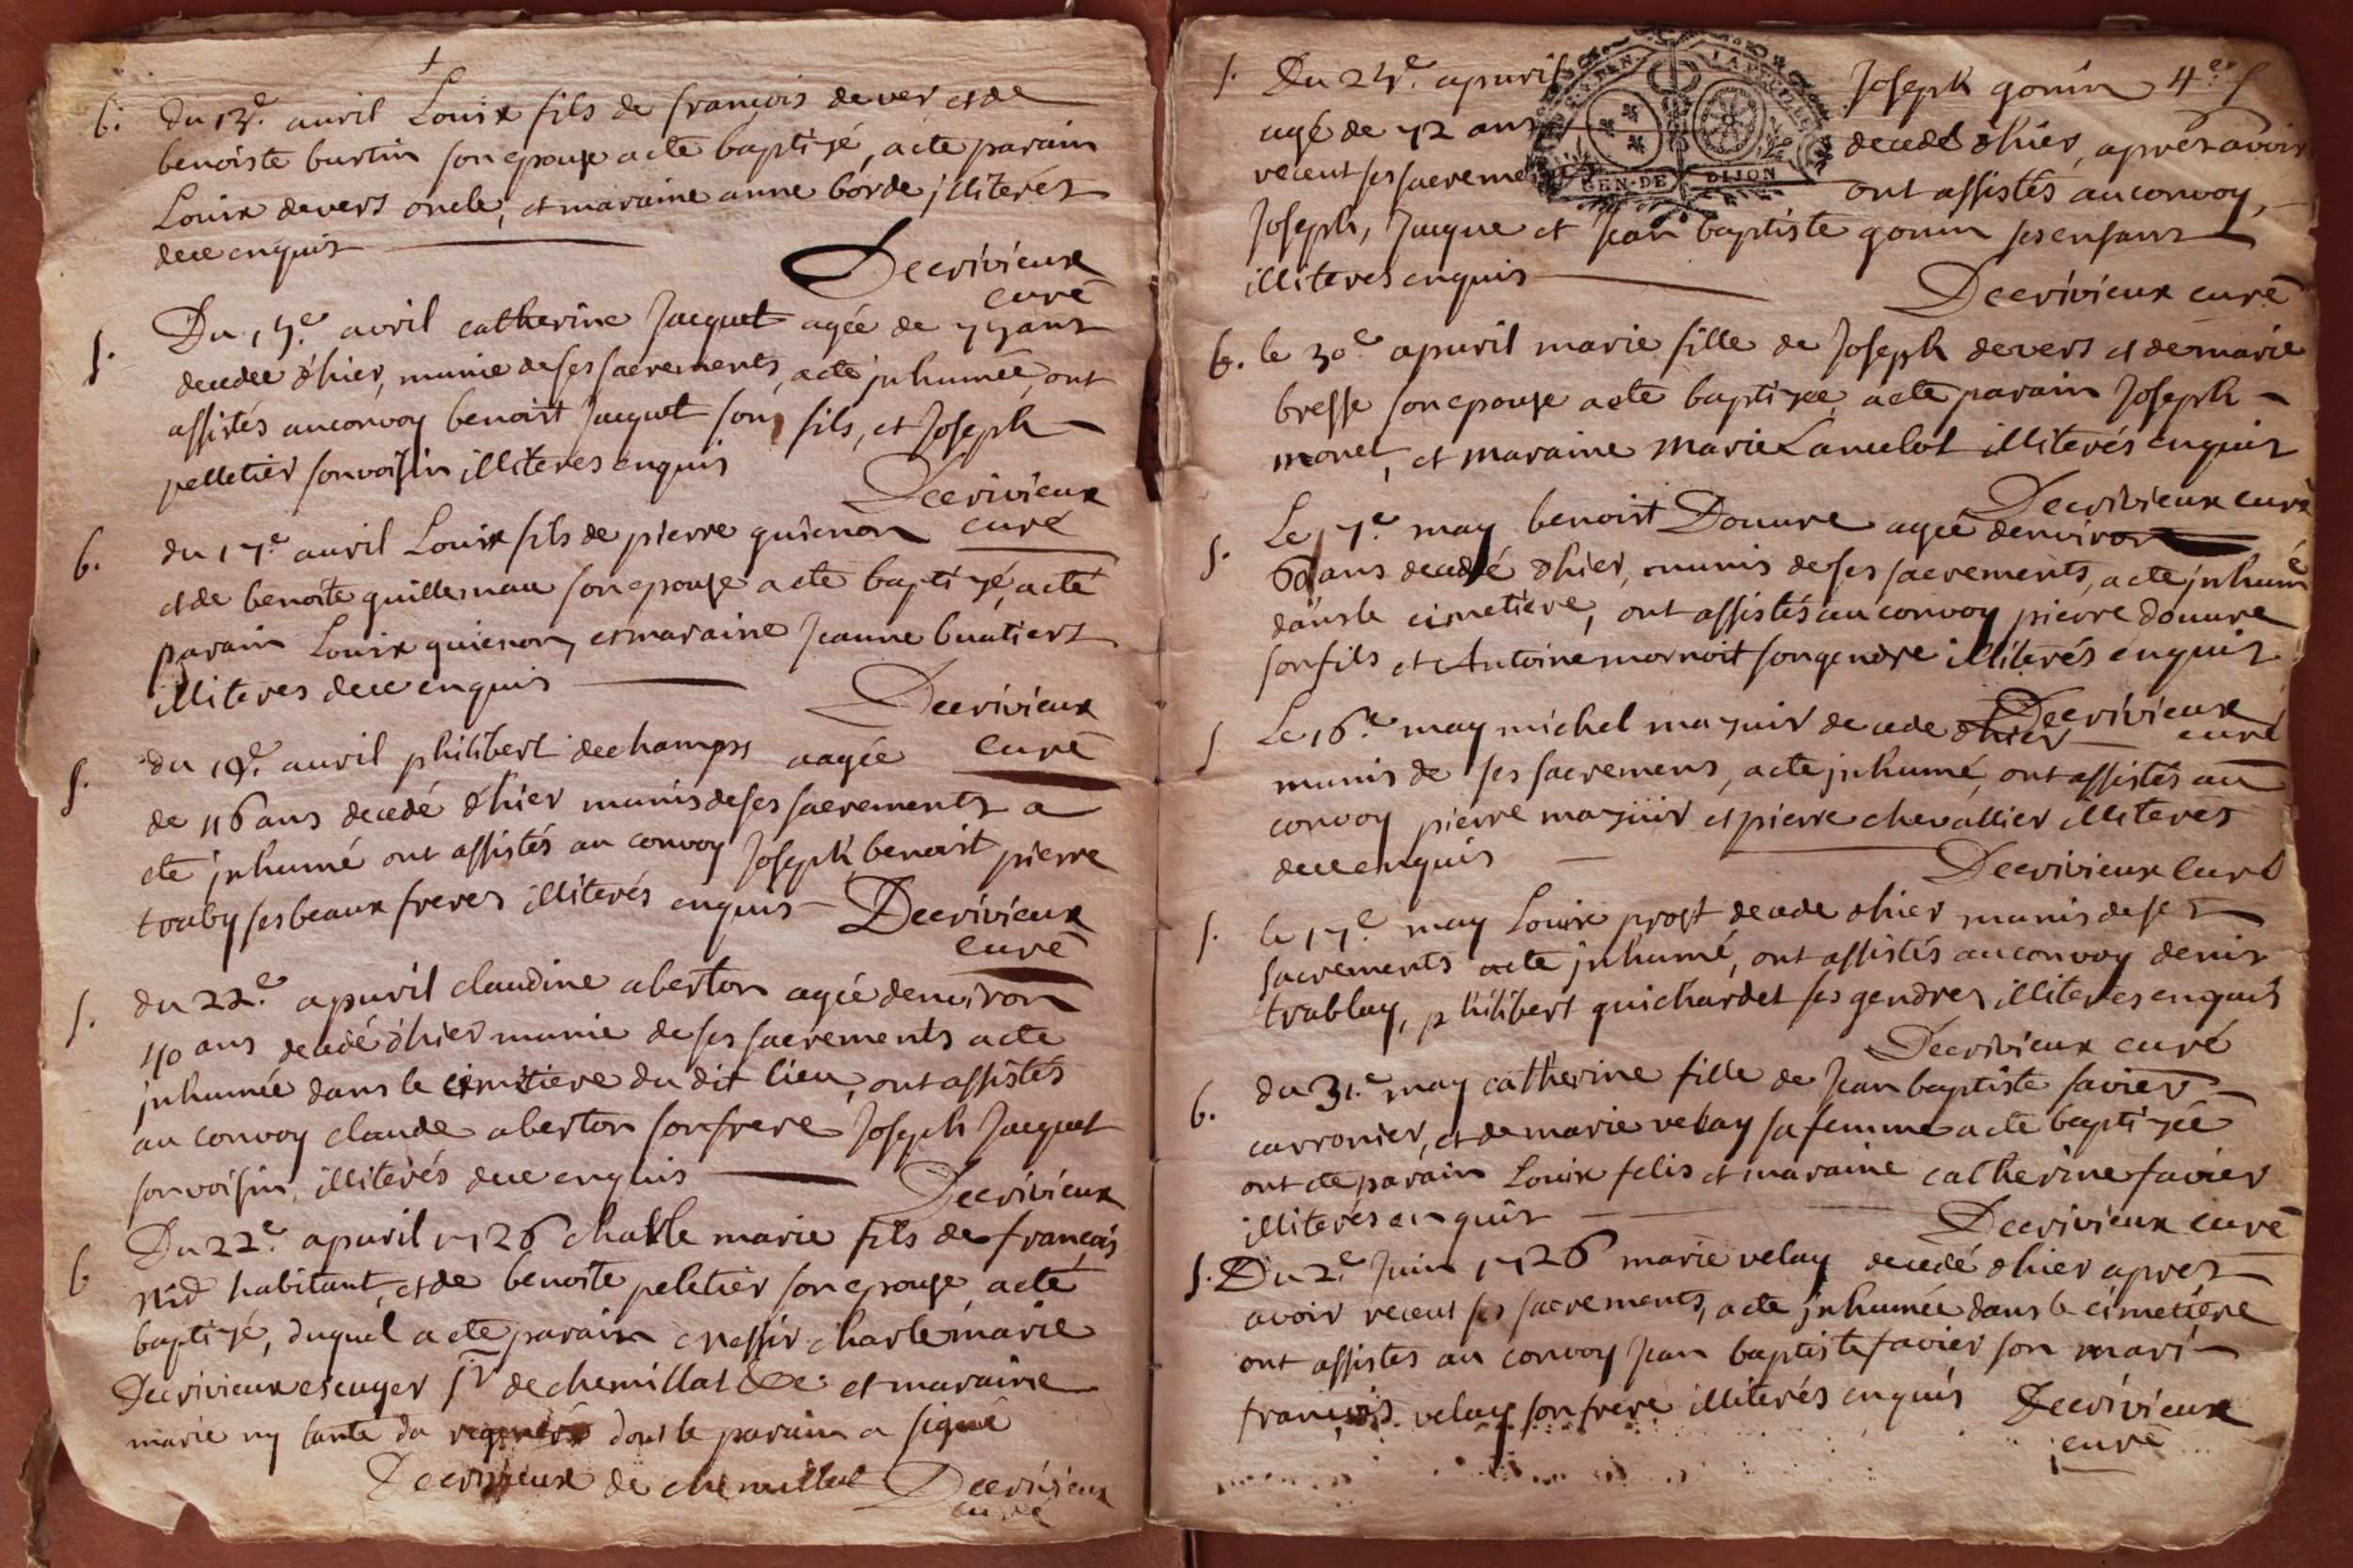 b. du 13e. auril Louix fils de françois dever et de
benoiste burtin son epouse a eté baptizé, a eté parain
Louix devers oncle, et maraine anne borde illiterés
de ce enquis
Decrivieux
curé
s. Du 15e. avril catherine Jacquet agée de 75 ans
decedee d'hier, munie de ses sacrements, a eté jnhumée, ont
assistés au convoy benoist Jacquet son fils, et Joseph
pelletier son voisin illiteres enquis
Decrivieux
curé
b. du 17e. auril Louix fils de pierre quienon
et de benoite guillemau son epouse a eté baptizé, a eté
parain Louix quienon, et maraine Jeanne buatiers
illiteres de ce enquis
Decrivieux
curé
s. du 19e. auril philibert dechamps aagée
de 46 ans decedé d'hier munis de ses sacrements a
eté jnhumé ont assistés au convoy Joseph, benoist pierre
traby ses beaux freres illiterés enquis
Decrivieux
curé
s. du 22e. apuril claudine aberton agée denviron
40 ans decedé d'hier munie de ses sacrements a eté
jnhumée dans le cimitiere du dit lieu, ont assistés
au convoy claude aberton son frere Joseph Jacquet
son voisin, illiterés de ce enquis
Decrivieux
b Du 22e. apuril 1726 charle marie fils de françois
nid habitant, et de benoite peletier son epouse, a eté
baptizé, duquel a eté parain messir charle marie
Decrivieux escuyer Sr de chemillat &c: et maraine
marie ny tante du dont le parain a signé
Decrivieux de chemillat Decrivieux
curé
s. Du 24e. apuril Joseph gonin 4e. s
agé de 72 ans decedé d'hier, aprés avoir
receut ses sacrements ont assistés au convoy,
GEN. DE DIJON
Joseph, Jacque et Jean baptiste gonin ses enfans
illiterés enquis
Decrivieux curé
b. le 30e. apuril marie fille de Joseph devers et de marie
bresse son epouse a eté baptizée, a eté parain Joseph
monet, et maraine marie Lancelot illiterés enquis
Decrivieux curé
s. Le 7e. may benoist Douure agée denviron
60 ans decedé d'hier, munis de ses sacrements, a eté jnhumé
dans le cimetiere, ont assistés au convoy pierre douure
son fils et Antoine mornoit son gendre illiterés enquis
Decrivieux
curé
s Le 16e. may michel mazuir decede d'hier
munis de ses sacremens, a eté jnhumé, ont assistés au
convoy pierre mazuir et pierre chevallier illiteres
de ce enquis
Decrivieux curé
s. le 17e. may Louix prost decede d'hier munis de ses
sacrements a eté jnhumé, ont assistés au convoy denis
trablay, philibert guichardet ses gendres illiteres enquis
Decrivieux curé
b. du 31e. may catherine fille de Jean baptiste favier
carronier, et de marie velay sa femme a eté baptizée
ont eté parain Louix felis et maraine catherine favier
illiterés enquis
Decrivieux curé
s. Du 2e. Juin 1726 marie velay decedé d'hier apres
avoir receut ses sacrements, a eté jnhumée dans le cimetiere
ont assistés au convoy Jean baptiste favier son mari
françois velay son frere illiterés enquis
Decrivieux
curé